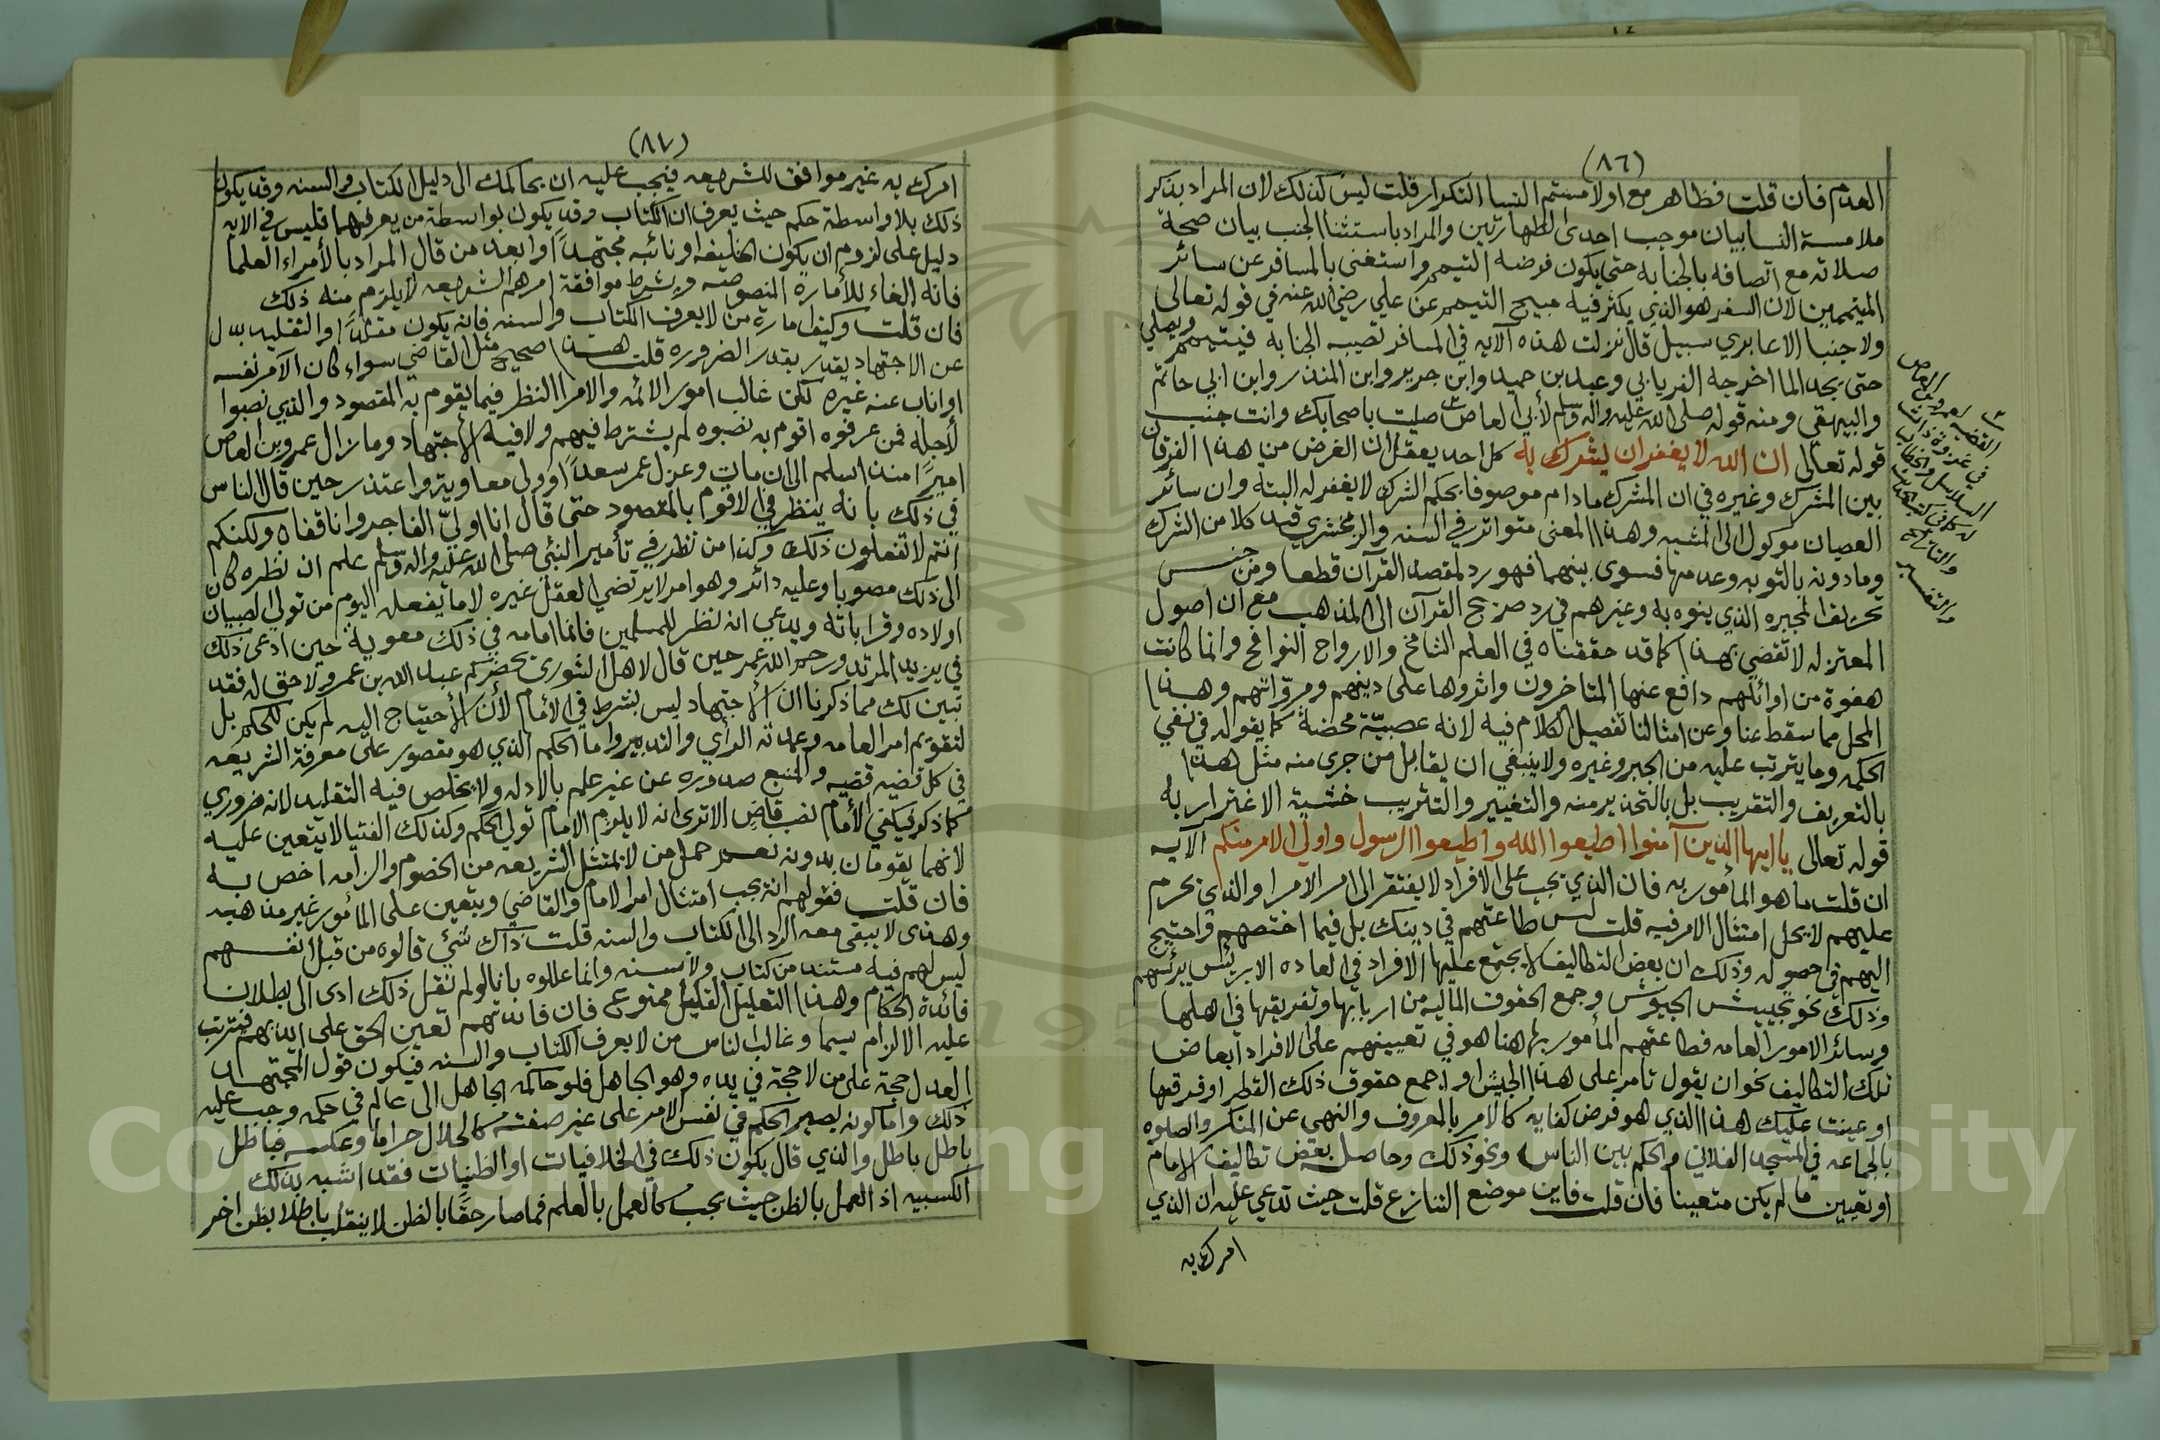 (٨٦)
العدم فان قلت فظاهر مع اولامستم النسا التكرار قلت ليس كذلك لان المراد بذكر
ملامسة النسا بيان موجب احدى الطهارتين والمراد باستثنا الجنب بيان صحة
صلاته مع اتصافه بالجنابه حتى يكون فرضه التيمم واستغنى بالمسافر عن سائر
المتيممين لان السفر هو الذي يكثر فيه مبيح التيمم عن علي رضي الله عنه في قوله تعالى
ولا جنبا الا عابري سبيل قال نزلت هذه الآيه في المسافر تصيبه الجنابه فيتيمم ويصلي
حتى يجد الما اخرجه الفريابي وعبد بن حميد وابن جرير وابن المنذر وابن ابي حاتم
والبيهقي ومنه قوله صلى الله عليه واله وسلم لأبي العاص٣ صليت باصحابك وانت جنب
قوله تعالى ان الله لا يغفر ان يشرك به كل احد يعقل ان الغرض من هذا الفرقان
بين المشرك وغيره في ان المشرك مادام موصوفا بحكم الشرك لا يغفر له البتة وان سائر
العصيان موكول الى المشيه وهذا المعنى متواتر في السنه والزمخشري قيد كلا من الشرك
ومادونه بالتوبه وعدمها فسوى بينهما فهو رد لمقصد القرآن قطعا ومن جنس
تحريف المجبره الذي ينوه به وغيرهم في رد صريح القرآن الى المذهب مع ان اصول
المعتزله لا تقضي بهذا كما قد حققناه في العلم الشامخ والارواح النوافح وانما كانت
هفوة من اوائلهم دافع عنها المتاخرون واثروها على دينهم ومروّاتهم وهذا
المحل مما سقط عنا وعن امثالنا تفصيل الكلام فيه لانه عصبيّة محضة كما يقوله في نفي
الحكمه وما يترتب عليه من الجبر وغيره ولا ينبغي ان يقابل من جرى منه مثل هذا
بالتعريف والتقريب بل بالتحذير منه والتغيير والتثريب خشية الاغترار به
قوله تعالى يا ايها الذين آمنوا اطيعوا الله واطيعوا الرسول واولي الامر منكم الآيه
ان قلت ما هو المأمور به فان الذي يجب على الافراد لا يفتقر الى امر الامرا والذي يحرم
عليهم لا يحل امتثال الامر فيه قلت ليس طاعتهم في دينك بل فيما اختصهم واحتيج
اليهم في حصوله وذلك ان بعض التكاليف لا يجتمع عليها الافراد في العاده الا برئيس يرئسهم
وذلك نحو تجييش الجيوش وجمع الحقوق الماليه من اربابها وتفريقها في اهلها
وسائر الامور العامه فطاعتهم المأمور بها هنا هو في تعيينهم على الافراد ابعاض
تلك التكاليف نحو ان يقول تامر على هذا الجيش او اجمع حقوق ذلك القطر او فرقها
او عينت عليك هذا الذي هو فرض كفايه كالامر بالمعروف والنهي عن المنكر والصلوه
بالجماعه في المسجد الفلاني والحكم بين الناس ونحو ذلك وحاصله بعض تكاليف الامام
او تعيين ما لم يكن متعينا فان قلت فاين موضع التنازع قلت حيث تدعي عليه ان الذي
امرك به
٣ القضيه لعمرو بن العاص
في غزوة ذات
السلاسل والخطاب
له كما في كتب الحديث
والتاريخ
والتفسير
(٨٧)
امرك به غير موافق للشريعه فيجب عليه ان يحاكمك الى دليل الكتاب والسنه وقد يكون
ذلك بلا واسطة حكم حيث يعرف ان الكتاب وقد يكون بواسطة من يعرفهما فليس في الايه
دليل على لزوم ان يكون الخليفه او نائبه مجتهداً وابعد من قال المراد بالأمراء العلما
فانه الغاء للأماره المنصوصه وبشرط موافقة امرهم الشريعه لا يلزم منه ذلك
فان قلت وكيف امارة من لا يعرف الكتاب والسنه فانه يكون مقلداً والتقليد بدل
عن الاجتهاد يقدر بقدر الضروره قلت هذا صحيح مثل القاضي سواء كان الآمر نفسه
او اناب عنه غيره لكن غالب امور الائمه والامرا النظر فيما يقوم به المقصود والذي نصبوا
لأجله فمن عرفوه اقوم به نصبوه لم يشترط فيهم ولا فيه الاجتهاد وما زال عمرو بن العاص
اميراً منذ اسلم الى ان مات وعزل عمر سعداً وولى معاوية واعتذر حين قال الناس
في ذلك بانه ينظر في الاقوم بالمقصود حتى قال انا اولّي الفاجر وانا قفاه ولكنكم
انتم لا تفعلون ذلك وكذا من نظر في تأمير النبي صلى الله عليه واله وسلم علم ان نظره كان
الى ذلك مصوبا وعليه دائر وهو امر لا يرتضي العقل غيره لا ما يفعله اليوم من تولي الصبيان
اولاده وقراباته ويدعي انه نظر للمسلمين فانما امامه في ذلك معوية حين ادعى ذلك
في يزيد المرتد ورحم الله عمر حين قال لاهل الشورى يحضركم عبد الله بن عمر ولا حق له فقد
تبين لك مما ذكرنا ان الاجتهاد ليس بشرط في الأمام لأن الاحتياج اليه لم يكن للحكم بل
لتقويم امر العامه وعمدته الرأي والتدبير واما الحكم الذي هو مقصور على معرفة الشريعه
في كل قضيه قضيه والمتبع صدوره عن غير علم بالادله ولا يخلص فيه التقليد لانه ضروري
كما ذكر فيكفي الأمام نصب قاض الا ترى انه لا يلزم الإمام تولي الحكم وكذلك الفتيا لا يتعين عليه
لانهما يقومان بدونه نعم حمل من لا يمتثل الشريعه من الخصوم والزامه اخص به
فان قلت فقولهم انه يجب امتثال امر الامام والقاضي ويتعين على المأمور غير مذهبه
وهذا لا يبقى معه الرد الى الكتاب والسنه قلت ذاك شئ قالوه من قبل انفسهم
ليس لهم فيه مستند من كتاب ولا سنه وانما عللوه بانا لو لم نقل ذلك ادى الى بطلان
فائدة الحكام وهذا التعليل القليل ممنوع فان فائدتهم تعين الحق على ايديهم فيترتب
عليه الالزام سيما وغالب الناس من لا يعرف الكتاب والسنه فيكون قول المجتهد
العدل حجة على من لا حجة في يده وهو الجاهل فلو حاكمه الجاهل الى عالم في حكمه وجب عليه
ذلك واما كونه يصير الحكم في نفس الامر على غير صفته كالحلال حراما وعكسه فباطل
باطل باطل والذي قال يكون ذلك في الخلافيات او الظنيات فقد اشبه بذلك
الكسبيه اذ العمل بالظن حيث يجب كالعمل بالعلم فما صار حقا بالظن لا ينقلب باطلا بظن اخر
Copyright © King Saud University
1957